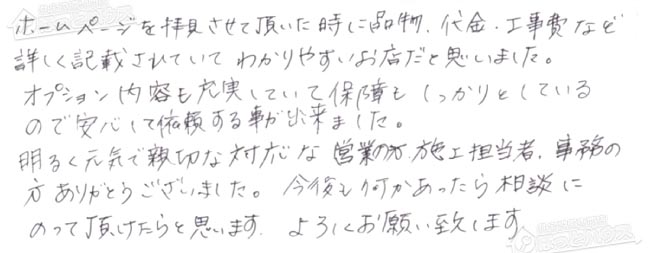 ホームページを拝見させて頂いた時に品物、代金、工事費など
詳しく記載されていてわかりやすいお店だと思いました。
オプション内容も充実していて保障もしっかりとしている
ので安心して依頼する事が出来ました。
明るく元気で親切な対応な営業の方、施工担当者、事務の
方ありがとうございました。今後も何かあったら相談に
のって頂けたらと思います。よろしくお願い致します